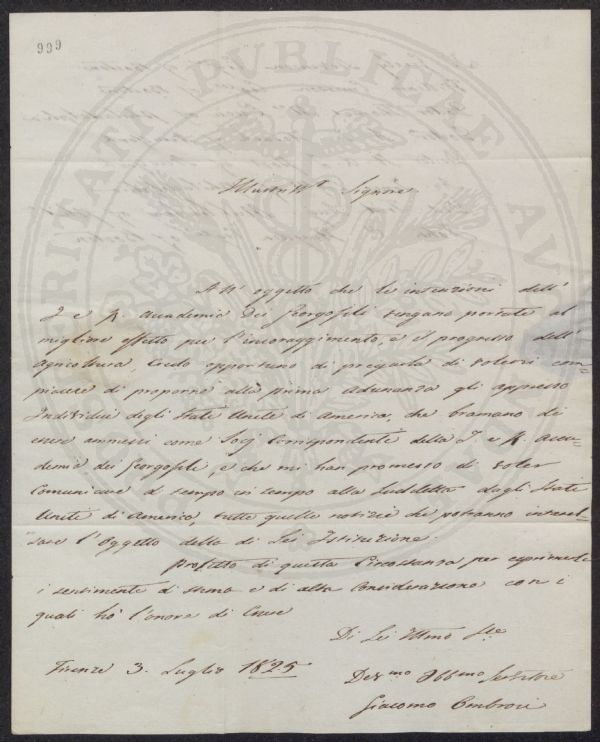 999
PROSPERITATI PVBLICAE AVGENDAE
Signore
All' oggetto che le intenzioni dell'
I e R. Accademia dei Georgofili vengano portate al
migliore effetto per l'incoraggimento, e il progresso dell'
Agricoltura, Credo opportuno di pregarla di volersi com=
piacere di proporre alla prima adunanza gli appresso
Individui degli State Unite di America, che bramano di
essere ammessi come Socj Corrispondente della I e R. Acca=
demia dei Georgofili, e che mi han promesso di voler
Comunicare di tempo in tempo alla Suddetta dagli State
Unite di America, tutte quelle notizie che potranno interes=
sare l'Oggetto della di Lei Istituzione.
Profitto di questa Circostanza per esprimerle
i sentimente di stima e di alta Considerazione con i
quali ho l'onore di Essere
Di Lei Illmo Sre
Firenze 3. Luglio 1825
Devmo Obbmo Servitore
Giacomo Ombrosi